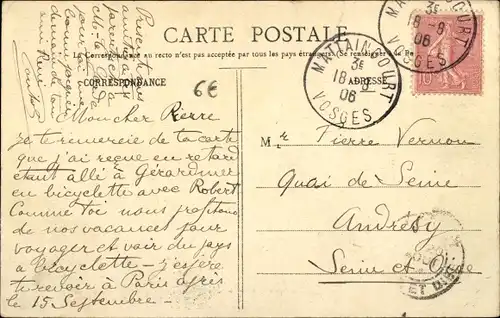 CARTE POSTALE
La Correspondance au recto n'est pas acceptée par tous les pays étrangers. (Se renseigner à la Poste
CORRESPONDANCE
ADRESSE
6€
MATTAINCOURT
3E
18 -8
06
VOSGES
MATTAINCOURT
3E
18 -8
06
VOSGES
10
Mon cher Pierre
je te remercie de ta carte
que j'ai reçue en retard
étant allé à Gérardmer
en bicyclette avec Robert
Comme toi nous profitons
de nos vacances pour
voyager et voir du pays
à bicyclette - j'espère
te revoir à Paris après
le 15 Septembre -
Mr Pierre Vernon
Quai de Seine
Andrésy
Seine et Oise
ami René